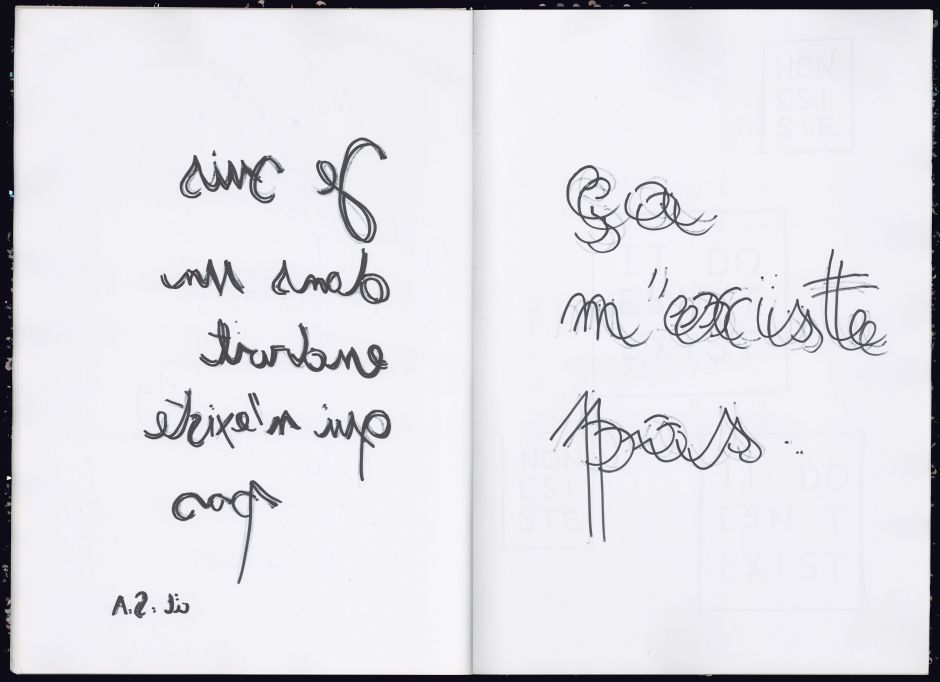 Je suis
dans un
endroit
qui n'existe
pas
cit: S.A
NON
ESI
STE
Ça
n'existe
pas...
IT DO
ESN'T
EXIST
NON
ESI
STE
IT DO
ESN'T
EXIST